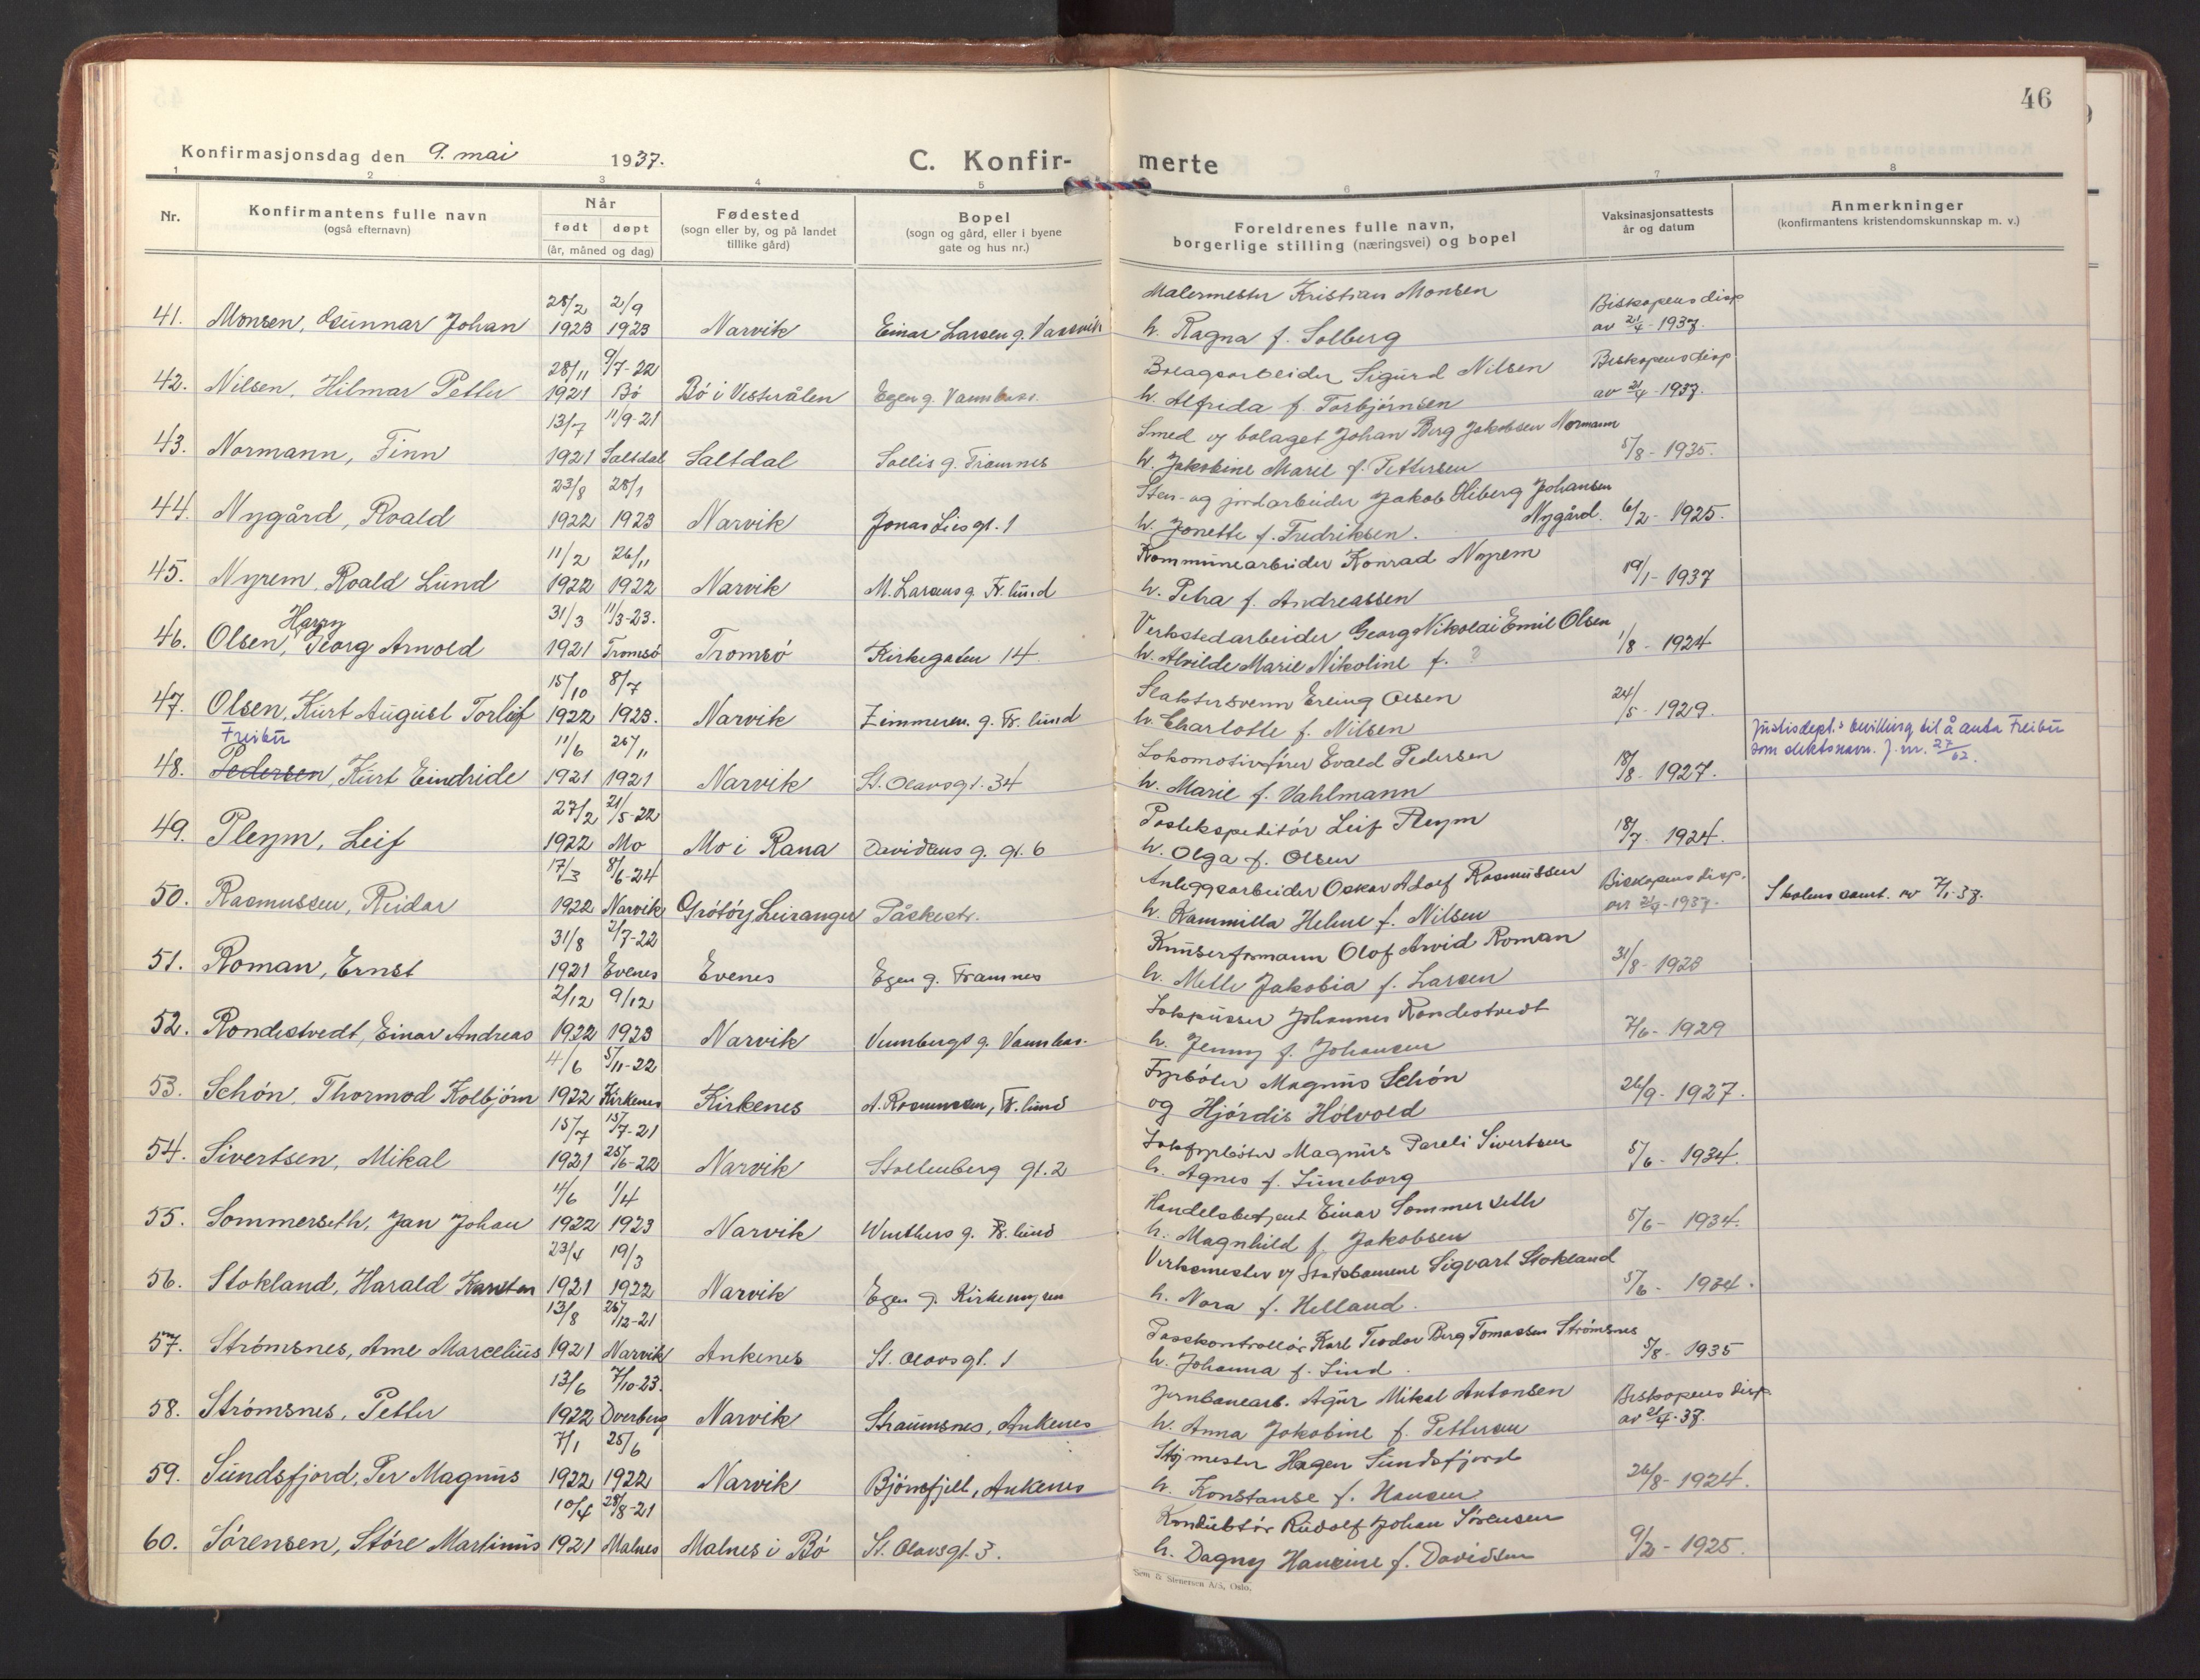 46
Konfirmasjonsdag den 9. mai 1937.
C. Konfir- merte
1 2 3 4 5 6 7 8
Nr.
Konfirmantens fulle navn
(også efternavn)
Når
født døpt
(år, måned og dag)
Fødested
(sogn eller by, og på landet
tillike gård)
Bopel
(sogn og gård, eller i byene
gate og hus nr.)
Foreldrenes fulle navn,
borgerlige stilling (næringsvei) og bopel
Vaksinasjonsattests
år og datum
Anmerkninger
(konfirmantens kristendomskunnskap m. v.)
28/2 2/9 Malermester Kristian Monsen Biskopens disp
41. Monsen, Gunnar Johan 1923 1923 Narvik Einar Larsen g. Vassvik h. Ragna f. Solberg av 21/4-1937.
28/11 9/7-22 Bolagsarbeider Sigurd Nilsen Biskopens disp
42. Nilsen, Hilmar Petter 1921 Bø Bø i Vesterålen Egen g. h. Alfrida f. Torbjørnsen av 21/4-1937.
13/7 11/9-21 Smed v/ bolaget Johan Berg Jakobsen Normann
43. Normann, Finn 1921 Saltdal Saltdal Soelis g. Framnes h. Jakobine Marie f. Pettersen 5/8-1935.
23/8 28/1 Sten- og jordarbeider Jakob Hiberg Johansen
44. Nygård, Roald 1922 1923 Narvik Jonas Liesgt. 1 h. Jonette f. Fredriksen. Nygård. 6/2-1925.
11/2 26/11 Kommunearbeider Konrad Nyrem
45. Nyrem, Roald Lund 1922 1922 Narvik M. Larsens g. Fr.lund h. Petra f. Andreassen 19/1-1937
Harry 31/3 11/3-23. Verkstedarbeider Georg Nikolai Emil Olsen
46. Olsen, Georg Arnold 1921 Tromsø Tromsø Kirkegaten 14 h. Alvilde Marie Nikoline f. ? 1/8-1924
15/10 8/7 Slaktersvenn Erling Olsen
47. Olsen, Kurt August Torleif 1922 1923. Narvik Zimmerm. g. Fr.lund h. Charlotte f. Nilsen 24/5-1929.
Freibu 11/6 26/11 Lokomotivfører Evald Pedersen Justisdept.s bevilling til å anta Freibu
48. Pedersen, Kurt Eindride 1921 1921 Narvik St. Olavsgt. 34 h. Marie f. Vahlmann 18/8-1927. som slektsnavn. J. nr. 27/62.
27/2 21/5-22 Postekspeditør Leif Pleym
49. Pleym, Leif 1922 Mo Mo i Rana Davidsens g. gt. 6 h. Olga f. Olsen 18/7-1924.
17/3 8/6-24 Anleggsarbeider Oskar Adolf Rasmussen Biskopens disp.
50. Rasmussen, Reidar 1922 Narvik Grøtøy Leiranger Påskestr. h. Kammilla Helene f. Nilsen av 21/4-1937. Skolens samt. av 7/1-37.
31/8 2/7-22 Knuserformann Olof Arvid Roman
51. Roman, Ernst 1921 Evenes Evenes Egen g. Framnes h. Mette Jakobia f. Larsen 31/8-1928
2/12 9/12 Lokpusser Johannes Rondestvedt
52. Rondestvedt, Einar Andreas 1922 1923 Narvik h. Jenny f. Johansen 7/6-1929
4/6 5/11-22 Fyrbøter Magnus Schön
53. Schön, Thormod Kolbjørn 1922 Kirkenes Kirkenes A. Rasmussen, Fr.lund og Hjørdis Hólvold 26/9-1927.
15/7 15/7-21 Lokfyrbøter Magnus Pareli Sivertsen
54. Sivertsen, Mikal 1921 25/6-22 Narvik Stoltenberg gt. 2 h. Agnes f. Luneborg 5/6-1934.
11/6 1/4 Handelsbetjent Einar Sommerseth
55. Sommerseth, Jan Johan 1922 1923 Narvik Winthers g. Fr.lund h. Magnhild f. Jakobsen 5/6-1934.
23/4 19/3 Verksmester v/ Statsbanene Sigvart Stokland
56. Stokland, Harald Karsten 1921 1922 Narvik Egen g. Kirkemyren h. Nora f. Helland. 5/6-1934.
13/8 26/12-21 Passkontrollør Karl Teodor Berg Tomassen Strømsnes
57. Strømsnes, Arne Marcelius 1921 Narvik Ankenes St. Olavsgt. 1 h. Johanna f. Lind. 5/8-1935
13/6 7/10-23. Jernbanearb. Agur Mikal Antonsen Biskopens disp.
58. Strømsnes, Petter 1922 Dverberg Narvik Straumsnes, Ankenes h. Anna Jakobine f. Pettersen av 21/4-37.
7/1 25/6 Stasjonsmester Hagen Sundsfjord
59. Sundsfjord, Per Magnus 1922 1922 Narvik Bjørnfjell, Ankenes h. Konstanse f. Hansen 26/8-1924.
10/4 28/8-21 Konduktør Rudolf Johan Sørensen
60. Sørensen, Støre Martinus 1921 Malnes Malnes i Bø St. Olavsgt. 3. h. Dagny Hansine f. Davidsen 9/2-1925.
Sem & Stenersen A/S, Oslo.